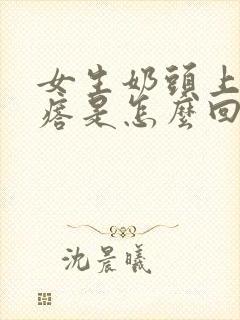 女生奶頭上
痞是怎麼回
沈晨曦